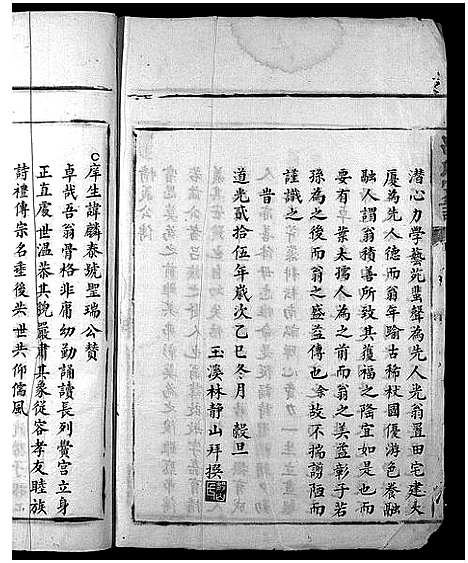 潜心力學藝苑蜚聲為先人光翁置田宅建大
廈為先人德而翁年踰古稀杖國優游色養融
融人謂翁積善所致其獲福之隆宜如是也而
要有草業夫孺人為之前而翁之美益彰于若
孫為之後而翁之盛益傳也余故不揣謭陋而
謹識之
人 昔
道光貳拾伍年歲次乙巳冬月 穀旦
玉溪林靜山拜撰
庠生諱麟泰號聖瑞公贊
卓哉吾翁骨格非庸幼勤誦讀長列黌宮立身
正直處世溫恭其貌嚴肅其象從容孝友睦族
詩禮傳宗名垂後世共仰儒風